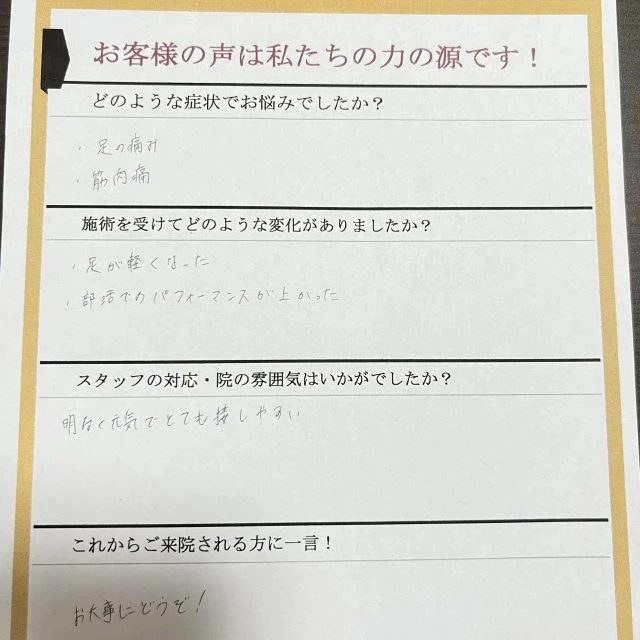 お客様の声は私たちの力の源です！
どのような症状でお悩みでしたか？
・足の痛み
・筋肉痛
施術を受けてどのような変化がありましたか？
・足が軽くなった
・部活でのパフォーマンスが上がった
スタッフの対応・院の雰囲気はいかがでしたか？
明るく元気でとても接しやすい
これからご来院される方に一言！
お大事にどうぞ！